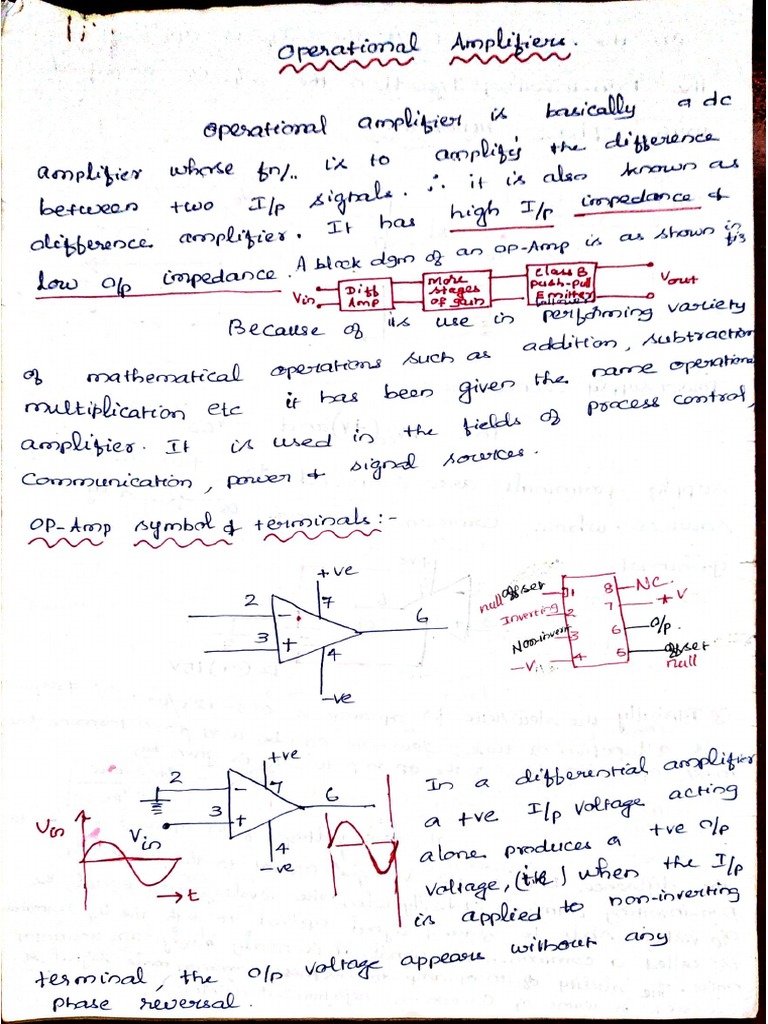 Operational Amplifiers.
Operational amplifier is basically a dc
amplifier whose fn/.. is to amplify's the difference
between two I/p signals. ∴ it is also known as
difference amplifier. It has high I/p impedance &
Low o/p impedance. A block dgm of an op-Amp is as shown in
fig
Vin
Diff
Amp
More
stages
of gain
Class B
push-pull
Emitter
follower
Vout
Because of its use in performing variety
of mathematical operations such as addition, subtraction
multiplication etc it has been given the name operational
amplifier. It is used in the fields of process control,
Communication, power & signal sources.
OP-Amp symbol & terminals:-
+ve
2
7
-
3
+
6
4
-ve
offset
null
1
8
NC.
Inverting
2
7
+V
Noninvert
3
6
O/p.
-V
4
5
offset
null
+ve
2
7
-
6
3
+
Vin
4
-ve
Vin
t
In a differential amplifier
a +ve I/p voltage acting
alone produces a +ve o/p
voltage, (i.e) when the I/p
is applied to non-inverting
terminal, the o/p voltage appears without any
phase reversal.